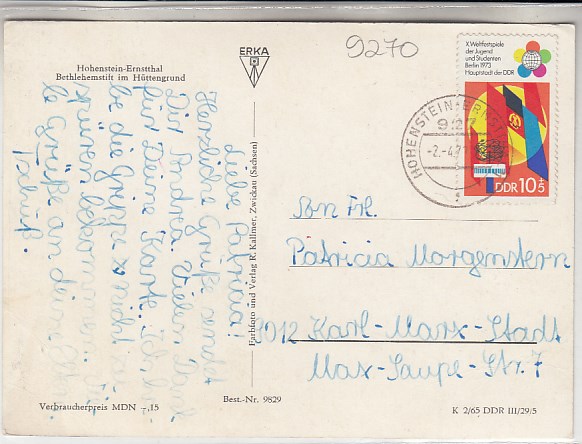 Hohenstein-Ernstthal
Bethlehemstift im Hüttengrund
ERKA
9270
X. Weltfestspiele
der Jugend
und Studenten
Berlin 1973
Hauptstadt der DDR
DDR 10+5
HOHENSTEIN-ERNST
927
-2.-4.7
Liebe Patricia!
Herzliche Grüße sendet
Dir Andrea. Vielen Dank
für Deine Karte. Ich
be die Grippe
spüren bekommen.
le Grüße an deine
Tschüß.
Farbfoto und Verlag R. Kallmer, Zwickau (Sachsen)
Frl.
Patricia Morgenstern
9012 Karl-Marx-Stadt
Max-Saupe-Str. 7
Verbraucherpreis MDN -,15
Best.-Nr. 9829
K 2/65 DDR III/29/5